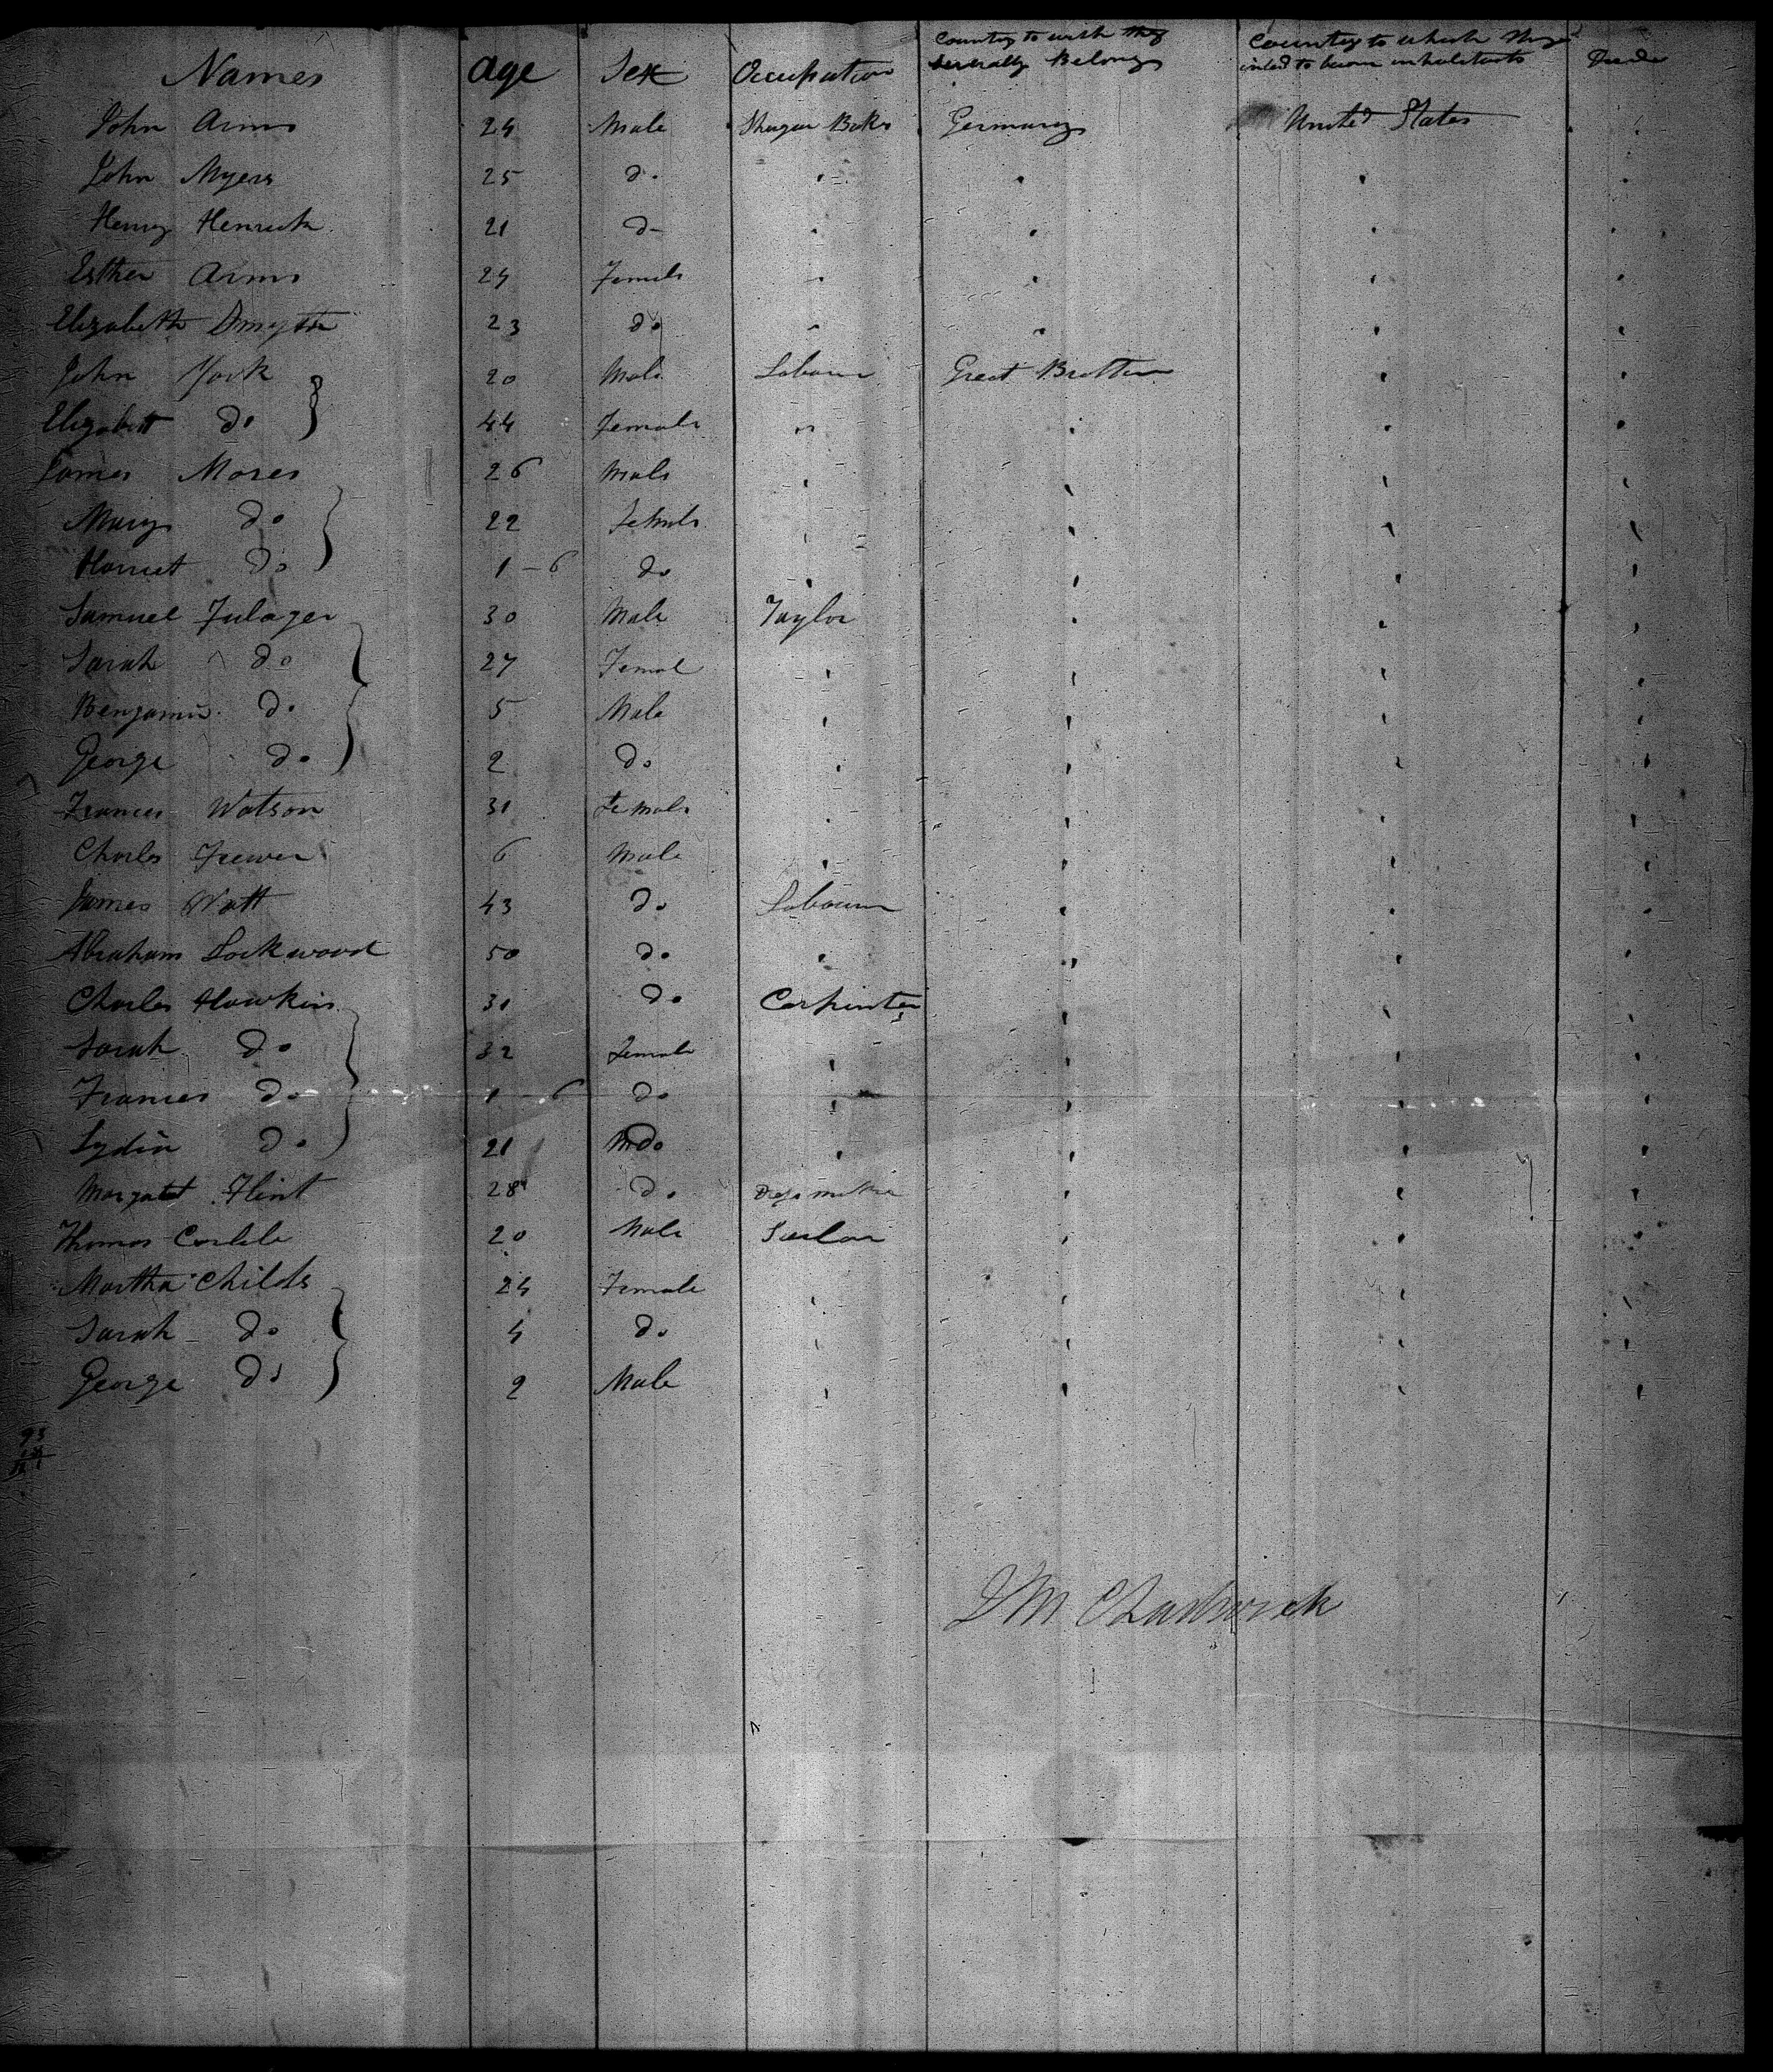 Names Age Sex Occupation Country to with they severally Belong Country to which they intend to becom inhabitants
John Arms 24 Male Shugar Baker Germany United States
John Myers 25 do
Henry Henrick 21 do
Esther Arms 24 Female
Elizabeth 23 do
John York 20 Male Labour Great Brittan
Elizabett do 44 Female "
James Moses 26 Male
Mary do 22 Female
Harriet do 1-6 do
Samuel Fulager 30 Male Taylor
Sarah do 27 Femal
Benjamin do 5 Male
George do 2 do
Frances Watson 31 Female
Charles Frewer 6 Male
James Watt 43 do Labourer
Abraham Lockwood 50 do
Charles Hawkins 31 do Carpinter
Sarah do 32 Female
Frances do 1-6 do
Lydia do 21 do
Margatet Flint 28 do Dress maker
Thomas Carlile 20 Male
Martha Childs 24 Female
Sarah do 4 do
George do 2 Male
J M Chadwick